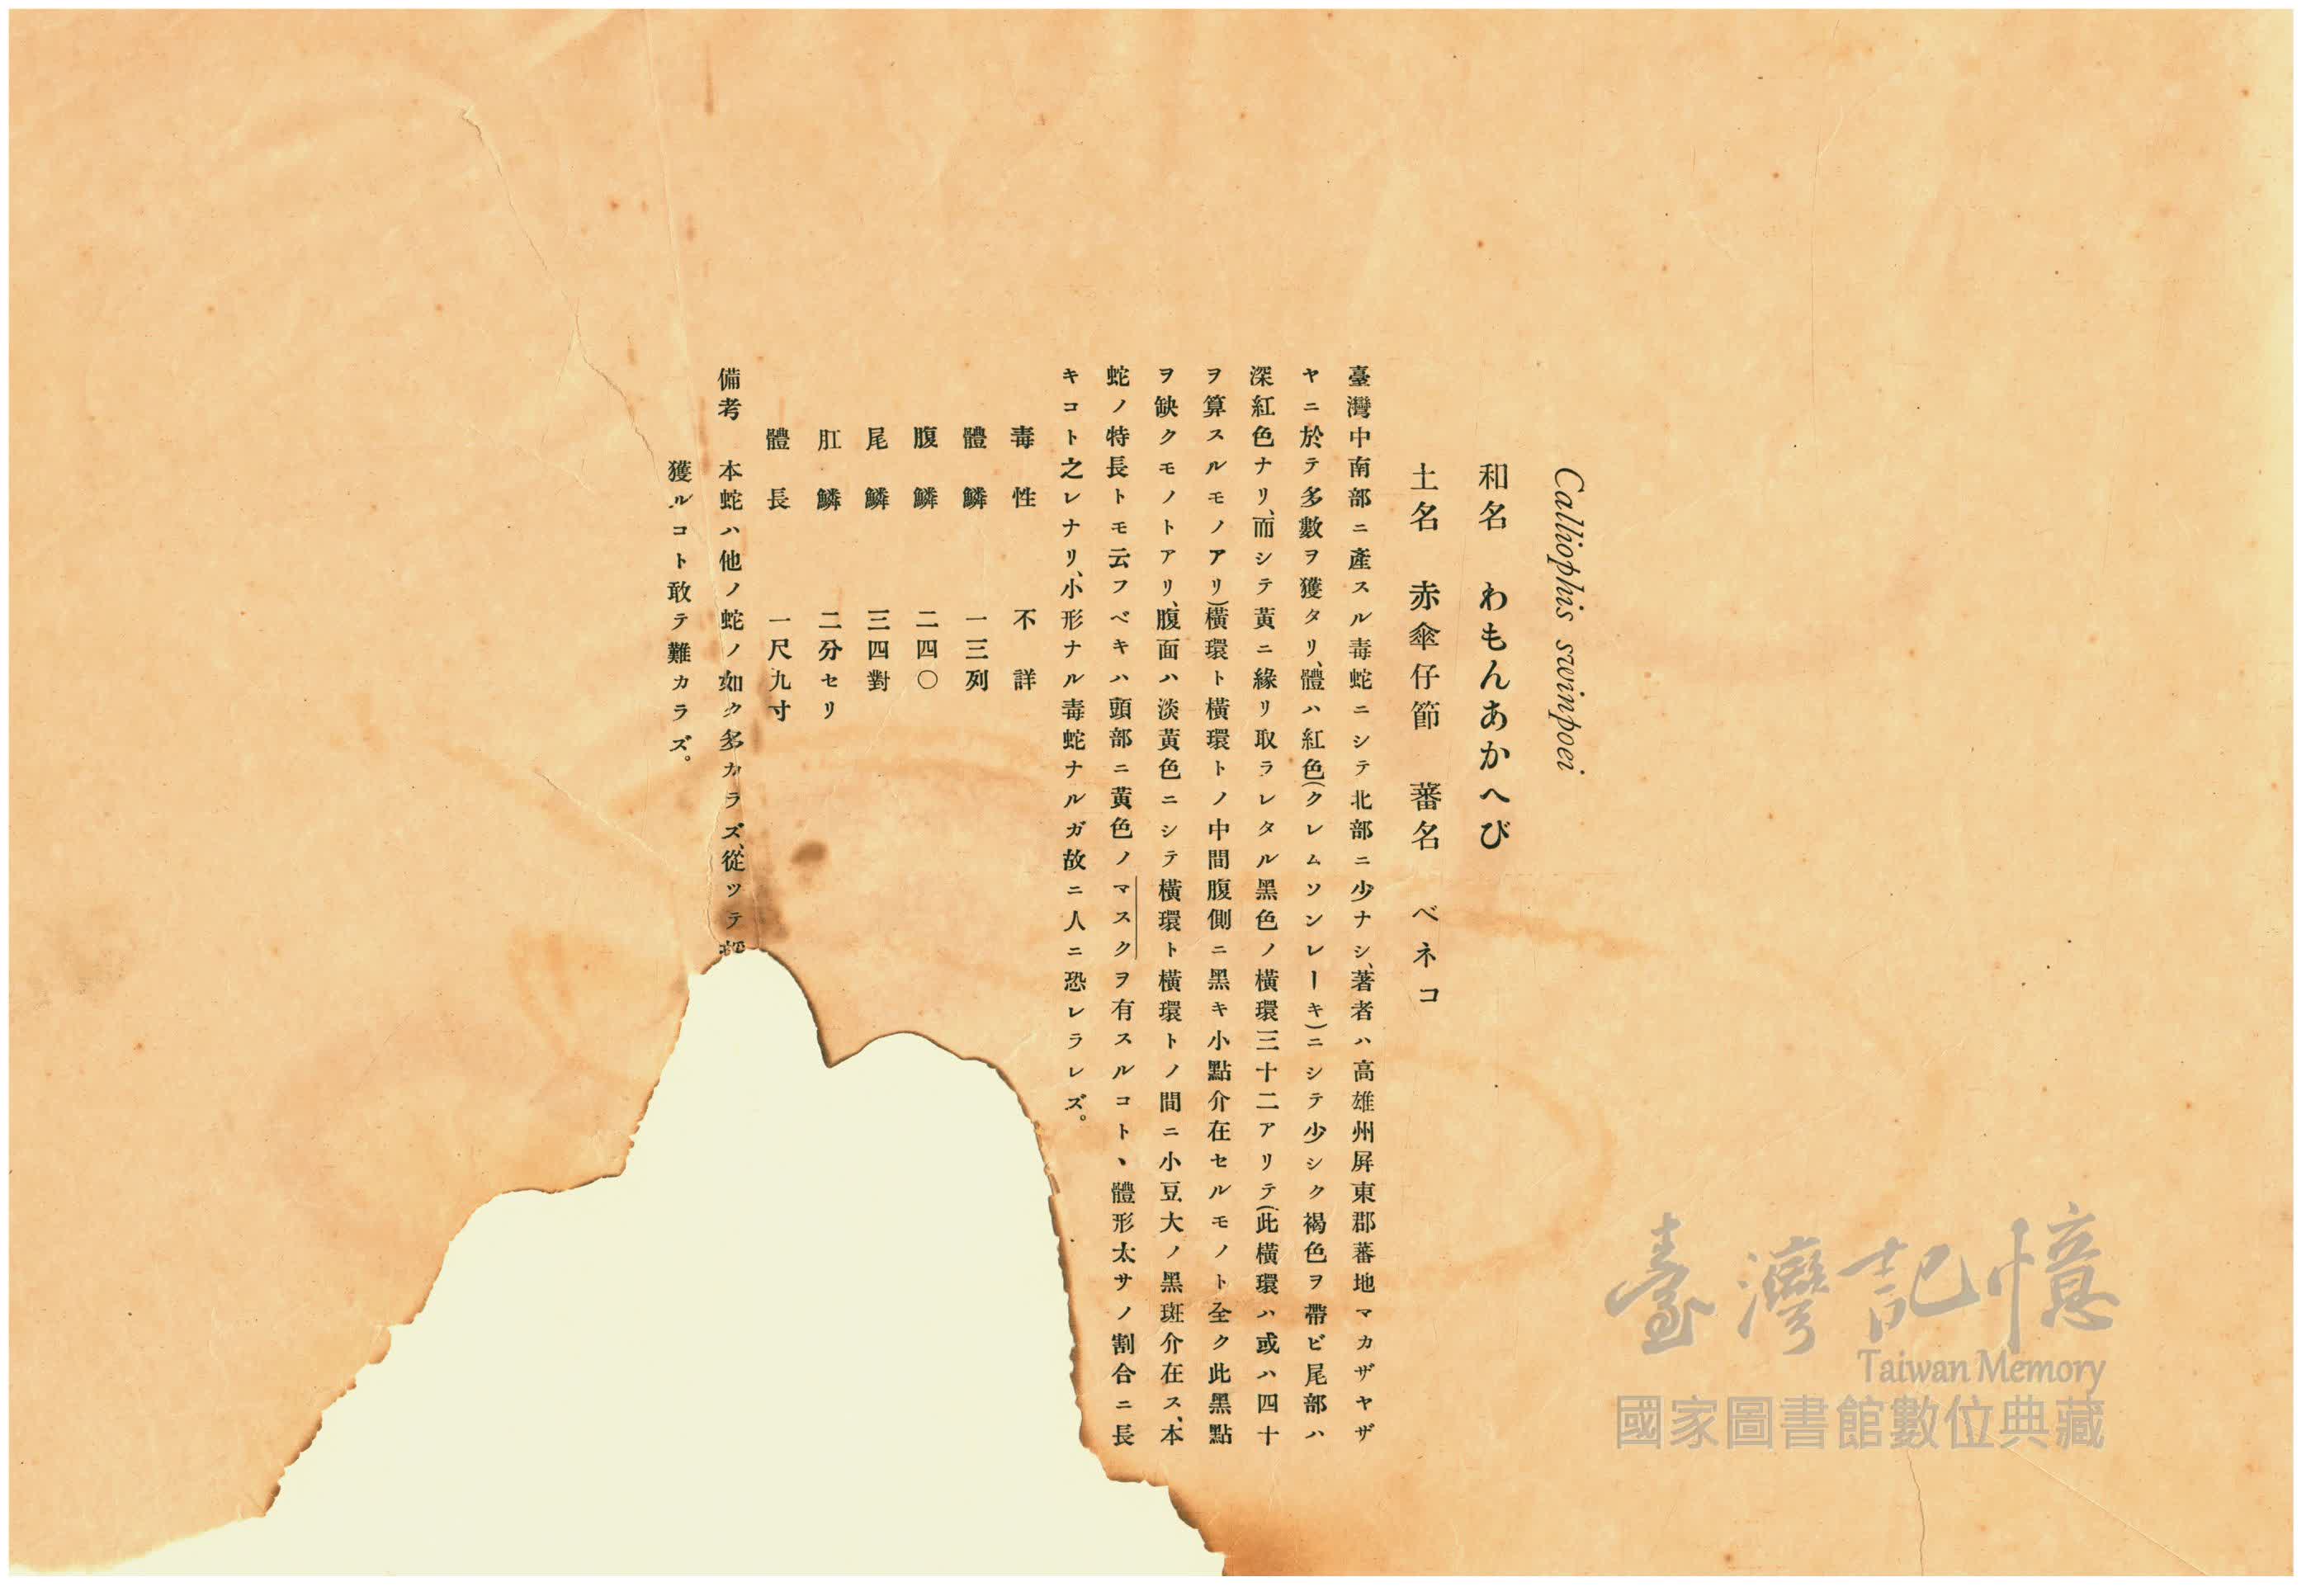 Calliophis swinhoei
和名　わもんあかへび
土名　赤傘仔節　蕃名　ベネコ
臺灣中南部ニ產スル毒蛇ニシテ北部ニ少ナシ、著者ハ高雄州屏東郡蕃地マカザヤザ
ヤニ於テ多數ヲ獲タリ、體ハ紅色(クレムソンレーキ)ニシテ少シク褐色ヲ帶ビ尾部ハ
深紅色ナリ、而シテ黃ニ緣リ取ラレタル黑色ノ橫環三十二アリテ(此橫環ハ或ハ四十
ヲ算スルモノアリ)橫環ト橫環トノ中間腹側ニ黑キ小點介在セルモノト全ク此黑點
ヲ缺クモノトアリ、腹面ハ淡黃色ニシテ橫環ト橫環トノ間ニ小豆大ノ黑斑介在ス、本
蛇ノ特長トモ云フベキハ頭部ニ黃色ノマスクヲ有スルコト、體形太サノ割合ニ長
キコト之レナリ、小形ナル毒蛇ナルガ故ニ人ニ恐レラレズ。
毒性　不詳
體鱗　一三列
腹鱗　二四〇
尾鱗　三四對
肛鱗　二分セリ
體長　一尺九寸
備考　本蛇ハ他ノ蛇ノ如ク多カラズ、從ツテ
獲ルコト敢テ難カラズ。
臺灣記憶
Taiwan Memory
國家圖書館數位典藏